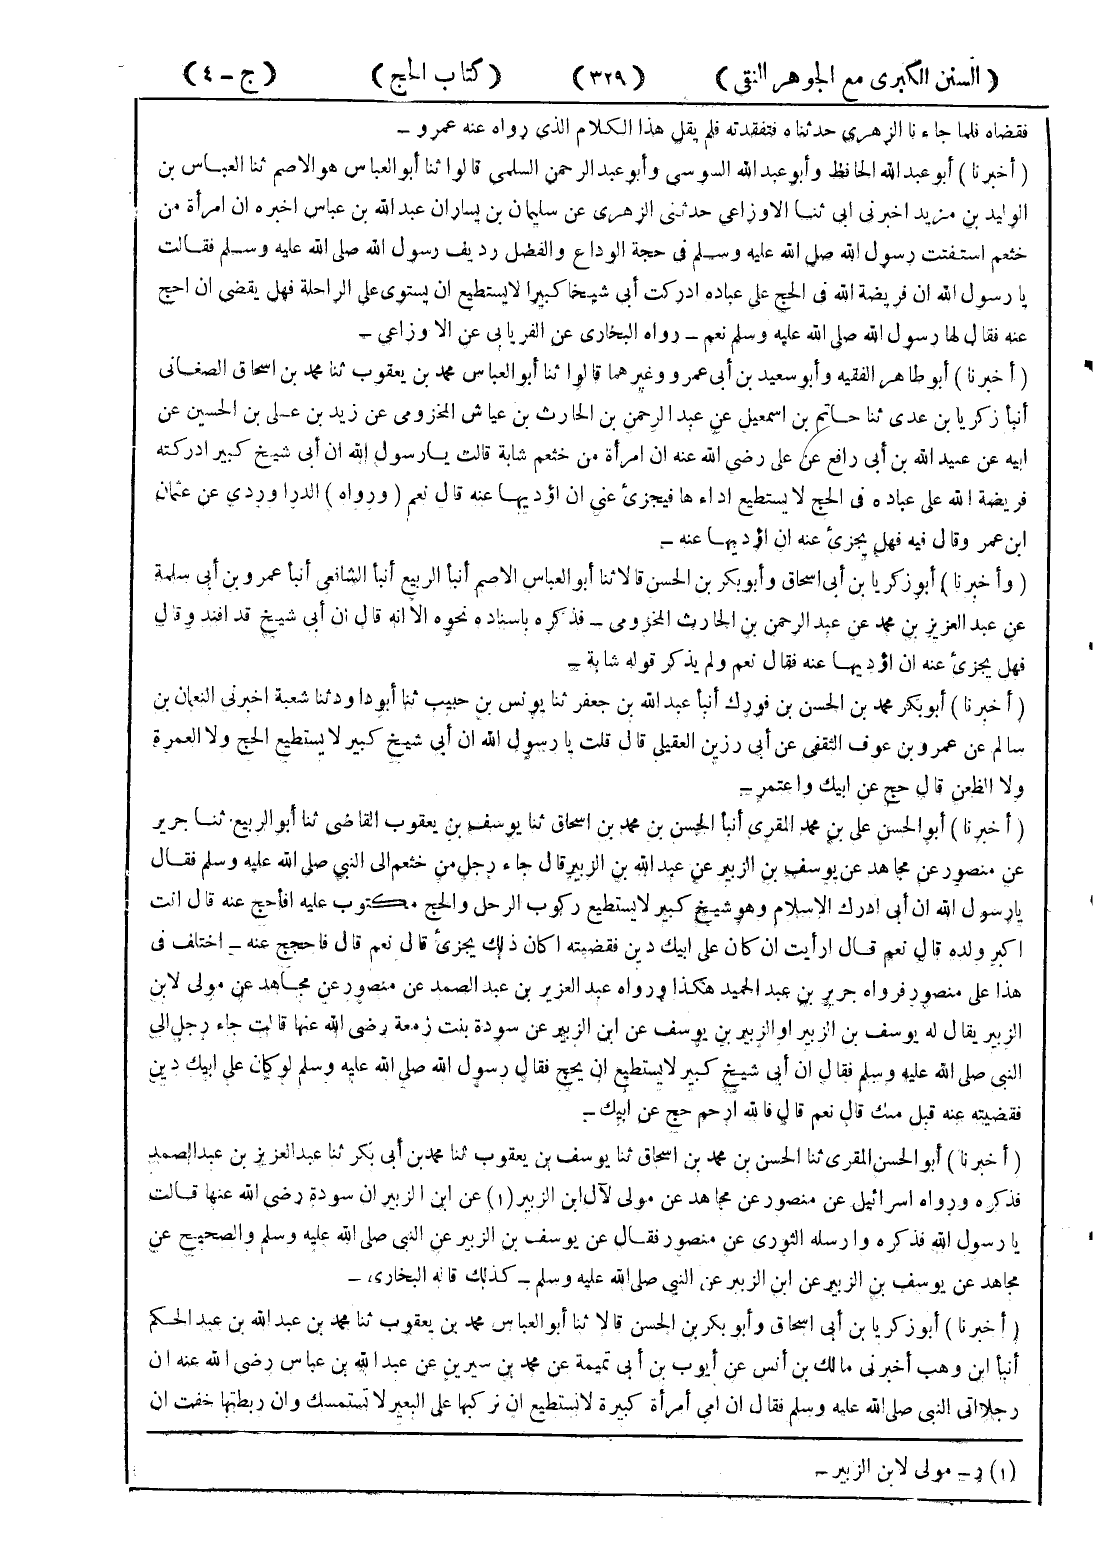 ( السنن الكبرى مع الجوهر النقى ) ( ٣٢٩ ) ( كتاب الحج ) ( ج - ٤ )
فقضاه فلما جاءنا الزهري حدثناه فتفقدته فلم يقل هذا الكلام الذي رواه عنه عمرو -
( أخبرنا ) أبو عبد الله الحافظ وأبو عبد الله السوسى وأبو عبد الرحمن السلمي قالوا ثنا أبو العباس هو الاصم ثنا العباس بن
الوليد بن مزيد اخبرنى ابى ثنا الاوزاعي حدثنى الزهرى عن سليمان بن يسار ان عبد الله بن عباس اخبره ان امرأة من
خثعم استفتت رسول الله صلى الله عليه وسلم فى حجة الوداع والفضل رديف رسول الله صلى الله عليه وسلم فقالت
يا رسول الله ان فريضة الله فى الحج على عباده ادركت أبى شيخا كبيرا لا يستطيع ان يستوى على الراحلة فهل يقضى ان احج
عنه فقال لها رسول الله صلى الله عليه وسلم نعم - رواه البخارى عن الفريابى عن الاوزاعى -
( أخبرنا ) أبو طاهر الفقيه وأبو سعيد بن أبى عمرو وغيرهما قالوا ثنا أبو العباس محمد بن يعقوب ثنا محمد بن اسحاق الصغانى
أنبأ زكريا بن عدى ثنا حاتم بن اسمعيل عن عبد الرحمن بن الحارث بن عياش المخزومى عن زيد بن على بن الحسين عن
ابيه عن عبيد الله بن أبى رافع عن على رضي الله عنه ان امرأة من خثعم شابة قالت يا رسول الله ان أبى شيخ كبير ادركته
فريضة الله على عباده فى الحج لا يستطيع اداءها فيجزئ عني ان اؤديها عنه قال نعم ( ورواه ) الدراوردي عن عثمان
ابن عمر وقال فيه فهل يجزئ عنه ان اؤديها عنه -
( وأخبرنا ) أبو زكريا بن أبى اسحاق وأبو بكر بن الحسن قالا ثنا أبو العباس الاصم أنبأ الربيع أنبأ الشافعى أنبأ عمرو بن أبى سلمة
عن عبد العزيز بن محمد عن عبد الرحمن بن الحارث المخزومى - فذكره باسناده نحوه الا انه قال ان أبى شيخ قد افند وقال
فهل يجزئ عنه ان اؤديها عنه فقال نعم ولم يذكر قوله شابة -
( أخبرنا ) أبو بكر محمد بن الحسن بن فورك أنبأ عبد الله بن جعفر ثنا يونس بن حبيب ثنا أبو داود ثنا شعبة اخبرنى النعمان بن
سالم عن عمرو بن عوف الثقفى عن أبى رزين العقيلي قال قلت يا رسول الله ان أبي شيخ كبير لا يستطيع الحج ولا العمرة
ولا الظعن قال حج عن ابيك واعتمر -
( أخبرنا ) أبو الحسن على بن محمد المقرى أنبأ الحسن بن محمد بن اسحاق ثنا يوسف بن يعقوب القاضى ثنا أبو الربيع ثنا جرير
عن منصور عن مجاهد عن يوسف بن الزبير عن عبد الله بن الزبير قال جاء رجل من خثعم الى النبي صلى الله عليه وسلم فقال
يا رسول الله ان أبى ادرك الاسلام وهو شيخ كبير لا يستطيع ركوب الرحل والحج مكتوب عليه افأحج عنه قال انت
اكبر ولده قال نعم قال ارأيت ان كان على ابيك دين فقضيته اكان ذلك يجزئ قال نعم قال فاحجج عنه - اختلف فى
هذا على منصور فرواه جرير بن عبد الحميد هكذا ورواه عبد العزيز بن عبد الصمد عن منصور عن مجاهد عن مولى لابن
الزبير يقال له يوسف بن الزبير او الزبير بن يوسف عن ابن الزبير عن سودة بنت زمعة رضى الله عنها قالت جاء رجل الى
النبي صلى الله عليه وسلم فقال ان أبى شيخ كبير لا يستطيع ان يحج فقال رسول الله صلى الله عليه وسلم لو كان على ابيك دين
فقضيته عنه قبل منك قال نعم قال فالله ارحم حج عن ابيك -
( أخبرنا ) أبو الحسن المقرى ثنا الحسن بن محمد بن اسحاق ثنا يوسف بن يعقوب ثنا محمد بن أبى بكر ثنا عبد العزيز بن عبد الصمد
فذكره ورواه اسرائيل عن منصور عن مجاهد عن مولى لآل ابن الزبير (١) عن ابن الزبير ان سودة رضى الله عنها قالت
يا رسول الله فذكره وارسله الثورى عن منصور فقال عن يوسف بن الزبير عن النبى صلى الله عليه وسلم والصحيح عن
مجاهد عن يوسف بن الزبير عن ابن الزبير عن النبي صلى الله عليه وسلم - كذلك قاله البخارى -
( أخبرنا ) أبو زكريا بن أبى اسحاق وأبو بكر بن الحسن قالا ثنا أبو العباس محمد بن يعقوب ثنا محمد بن عبد الله بن عبد الحكم
أنبأ ابن وهب أخبرنى مالك بن أنس عن أيوب بن أبى تميمة عن محمد بن سيرين عن عبد الله بن عباس رضى الله عنه ان
رجلا اتى النبى صلى الله عليه وسلم فقال ان امي أمرأة كبيرة لا نستطيع ان نركبها على البعير لا تستمسك وان ربطتها خفت ان
(١) ر - مولى لابن الزبير -